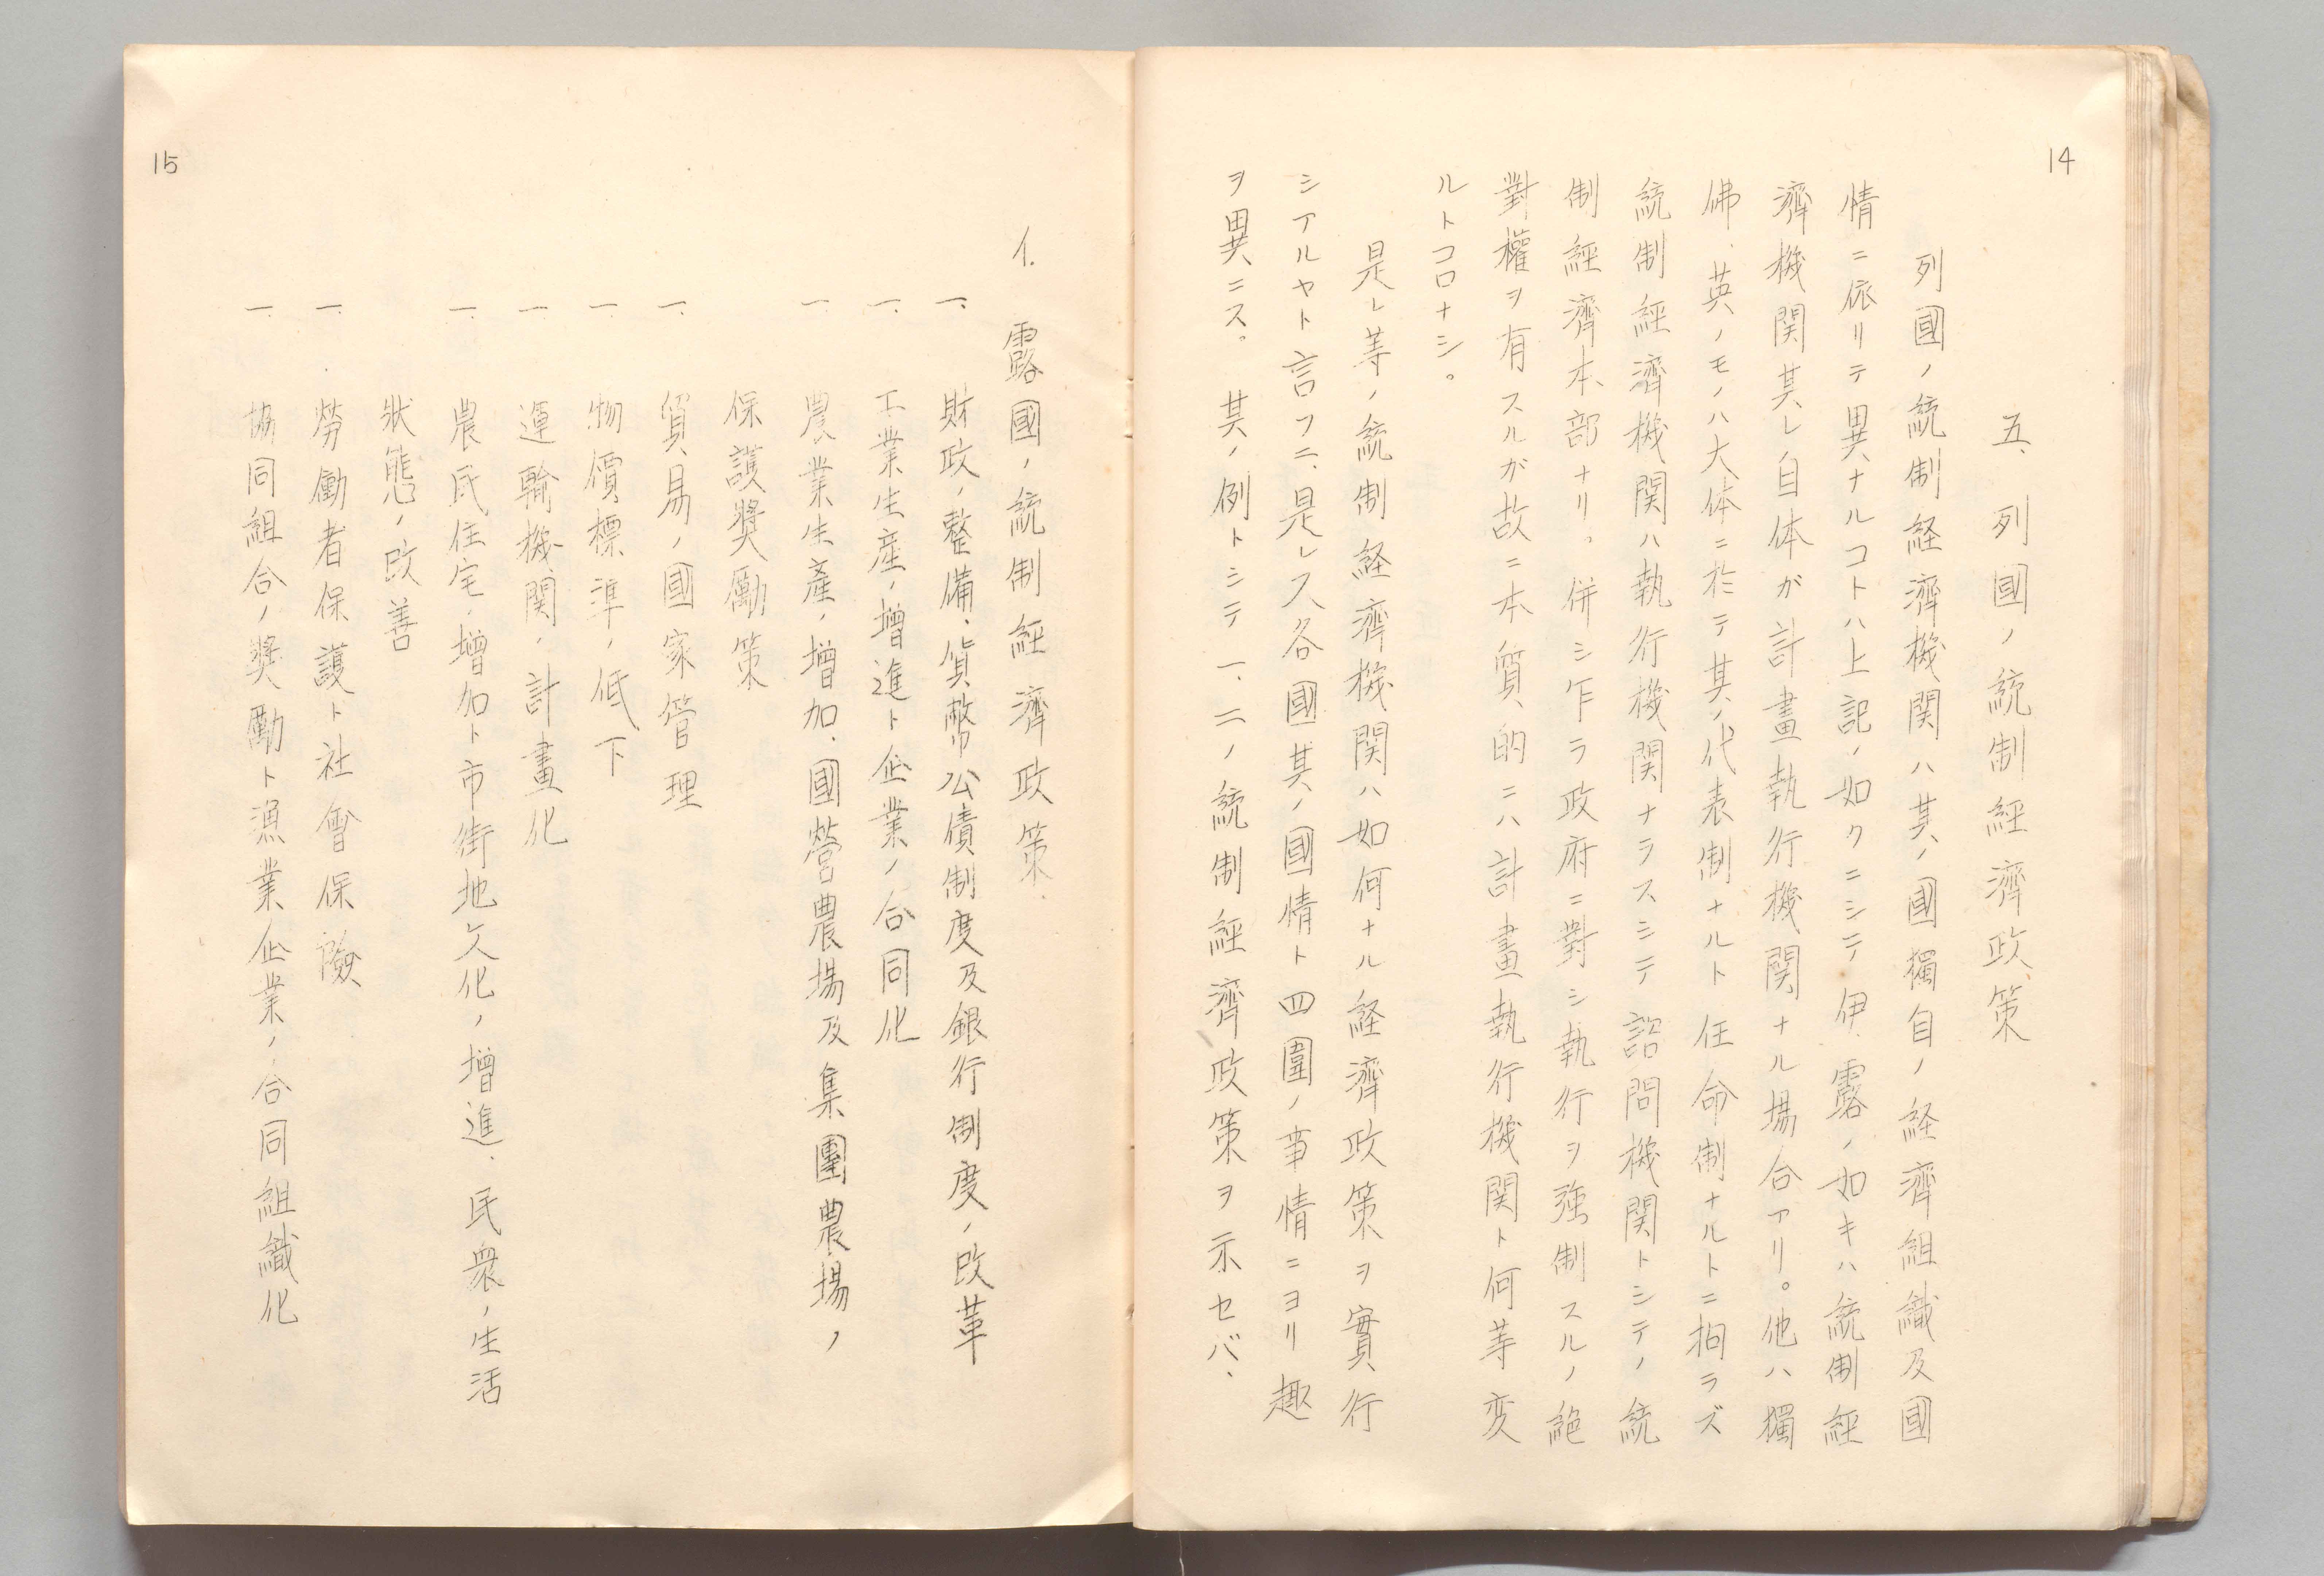 14
五、列國ノ統制経濟政策
列國ノ統制経濟機関ハ其ノ國獨自ノ経濟組織及國
情ニ依リテ異ナルコトハ上記ノ如クニシテ伊、露ノ如キハ統制経
濟機関其レ自体ガ計畫執行機関ナル場合アリ。他ハ獨
佛、英ノモノハ大体ニ於テ其ノ代表制ナルト任命制ナルトニ拘ラズ
統制経濟機関ハ執行機関ナラスシテ諮問機関トシテノ統
制経濟本部ナリ。併シ乍ラ政府ニ對シ執行ヲ強制スルノ絶
對權ヲ有スルガ故ニ本質的ニハ計畫執行機関ト何等変
ルトコロナシ。
是レ等ノ統制経濟機関ハ如何ナル経濟政策ヲ實行
シアルヤト言フニ、是レ又各國其ノ國情ト四圍ノ事情ニヨリ趣
ヲ異ニス。其ノ例トシテ一、二ノ統制経濟政策ヲ示セバ、
15
イ.露國ノ統制経濟政策.
一、財政ノ整備、貨幣公債制度及銀行制度ノ改革
一、工業生産ノ増進ト企業ノ合同化
一、農業生産ノ増加、國營農場及集團農場ノ
保護奬勵策
一、貿易ノ國家管理
一、物價標準ノ低下
一、運輸機関ノ計畫化
一、農民住宅ノ増加ト市街地文化ノ増進、民衆ノ生活
状態ノ改善
一、勞働者保護ト社會保險
一、協同組合ノ奬勵ト漁業企業ノ合同組織化